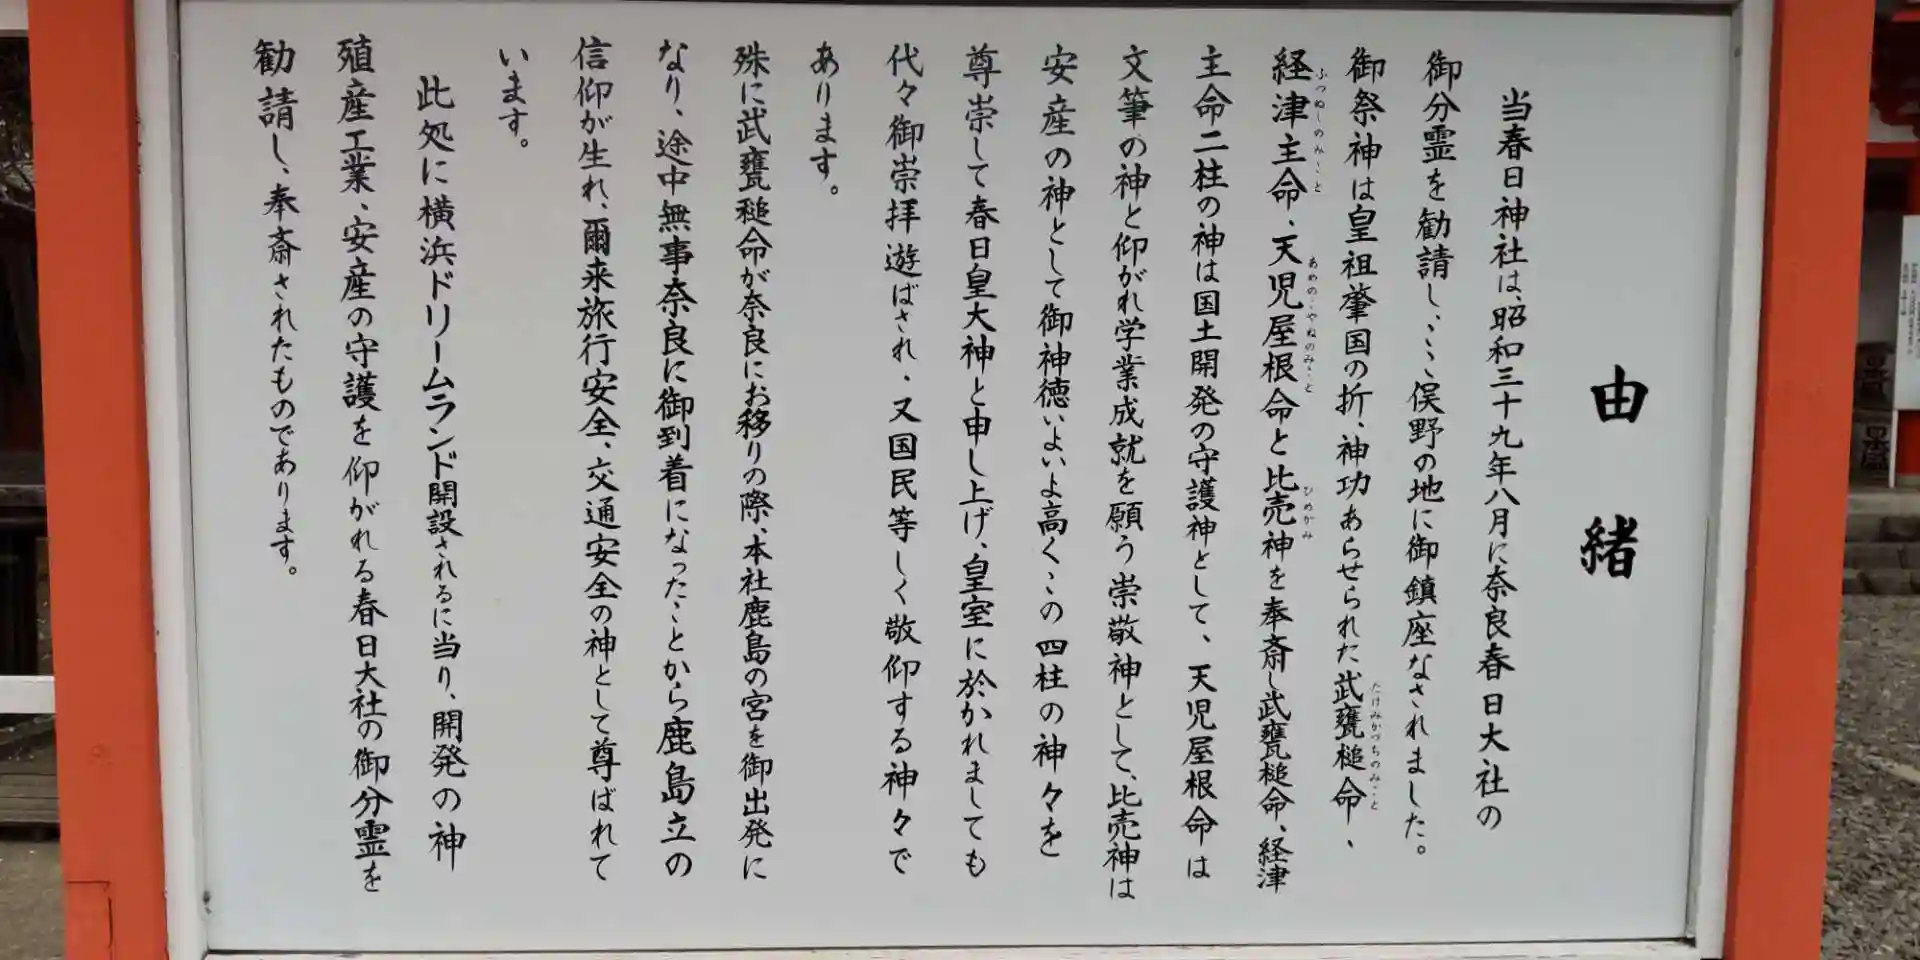 由緒
当春日神社は、昭和三十九年八月に奈良春日大社の
御分霊を勧請し、こゝ俣野の地に御鎮座なされました。
御祭神は皇祖肇国の折、神功あらせられた武甕槌命、
経津主命、天児屋根命と比売神を奉斎し武甕槌命、経津
主命二柱の神は国土開発の守護神として、天児屋根命は
文筆の神と仰がれ学業成就を願う崇敬神として、比売神は
安産の神として御神徳いよいよ高くこの四柱の神々を
尊崇して春日皇大神と申し上げ、皇室に於かれましても
代々御崇拝遊ばされ、又国民等しく敬仰する神々で
あります。
殊に武甕槌命が奈良にお移りの際、本社鹿島の宮を御出発に
なり、途中無事奈良に御到着になったことから鹿島立の
信仰が生れ、爾来旅行安全、交通安全の神として尊ばれて
います。
此処に横浜ドリームランド開設されるに当り、開発の神
殖産工業、安産の守護を仰がれる春日大社の御分霊を
勧請し、奉斎されたものであります。